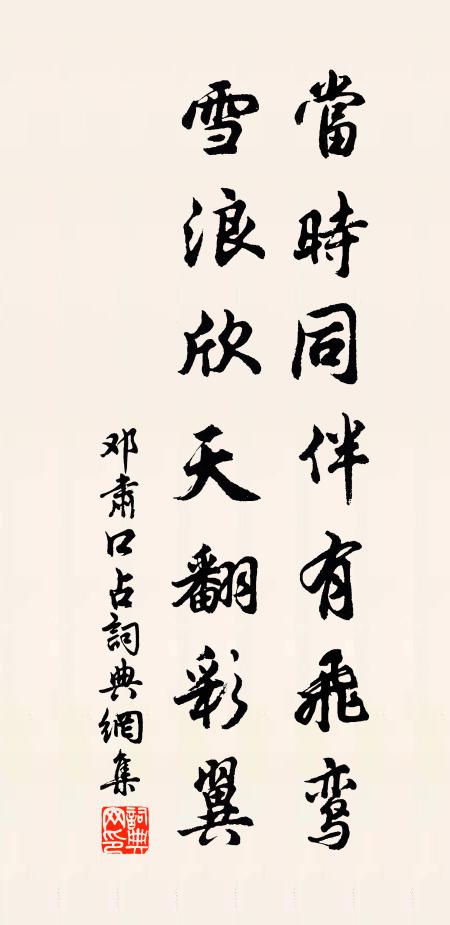 當時同伴有飛鸾
雪浪欣天翻彩翼
邓肅口占詞典網集
詞典网印